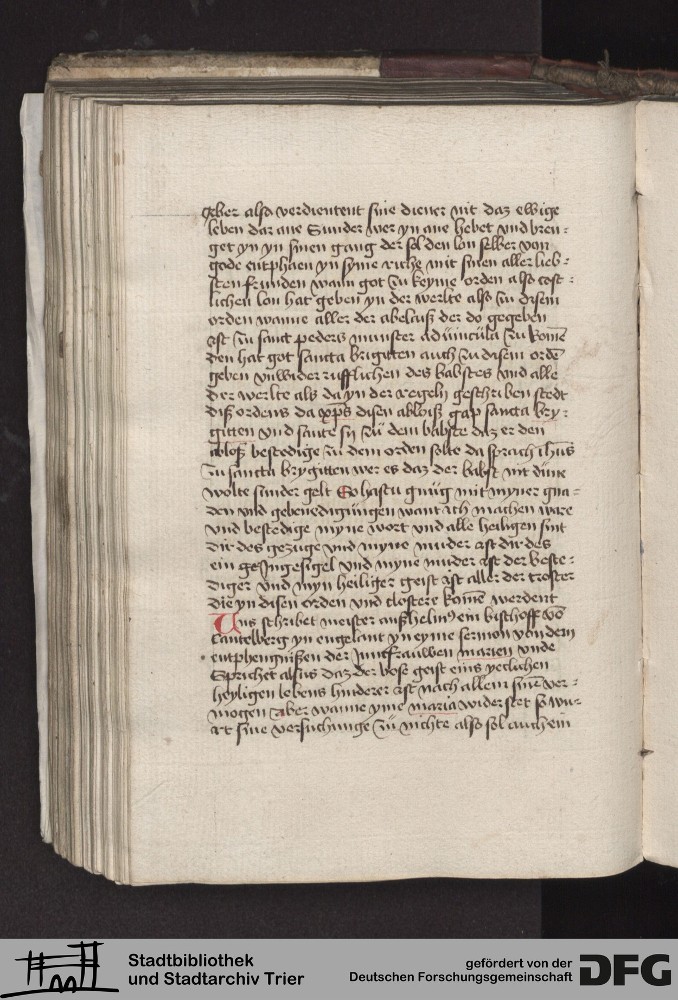 aber also verdientent sine diener nit daz ewige
leben dar ane Sunder wer yn ane hebet und bren=
get yn yn sinen gang der sol den lon selber von
gode entphaen yn syme riche mit sinen aller lieb=
sten frunden wann got zu keyme orden also cost=
lichen lon hat geben yn der werlte also zu disem
orden wanne aller der abelaiß der do gegeben
ist zu sanct peders munster ad uincula zu Rome
den hat got sancta brigitten auch zu disem ordē
geben unwider rufflichen des babstes und alle
der werlte als da yn der regeln geschriben stedt
diß ordens da xp̄s disen abloiß gap sancta bry=
gitten und sante sy zu dem babste daz er den
abloß bestedige zu dem orden solte da sprach ihūs
zu sancta brygitten wer es daz der babst nit dune
wolte sunder gelt So hastu gnug mit myner gna=
den und gebenedigungen want ich machen ware
und bestedige myne wort und alle heiligen sint
dir des gezuge und myne muder ist dir des
ein geIngesigel und myne muder ist der beste=
diger und myn heiliger geist ist aller der troster
die yn disen orden und clostere komē werdent
Uns schribet meister anßhelmꝰ ein bischoff vō
Cantelberg yn engelant yn eyme sermon von dem
entphengnißen der Junffrauwen marien unde
Sprichet alsus daz der bose geist eins yeclichen
heyligen lebens hinderer ist nach allem sinē ver=
mogen aber wanne yme maria wider stet so wu=
rt sine versuchunge zu nichte also sol auch ein
Stadtbibliothek
und Stadtarchiv Trier
gefördert von der
Deutschen Forschungsgemeinschaft
DFG